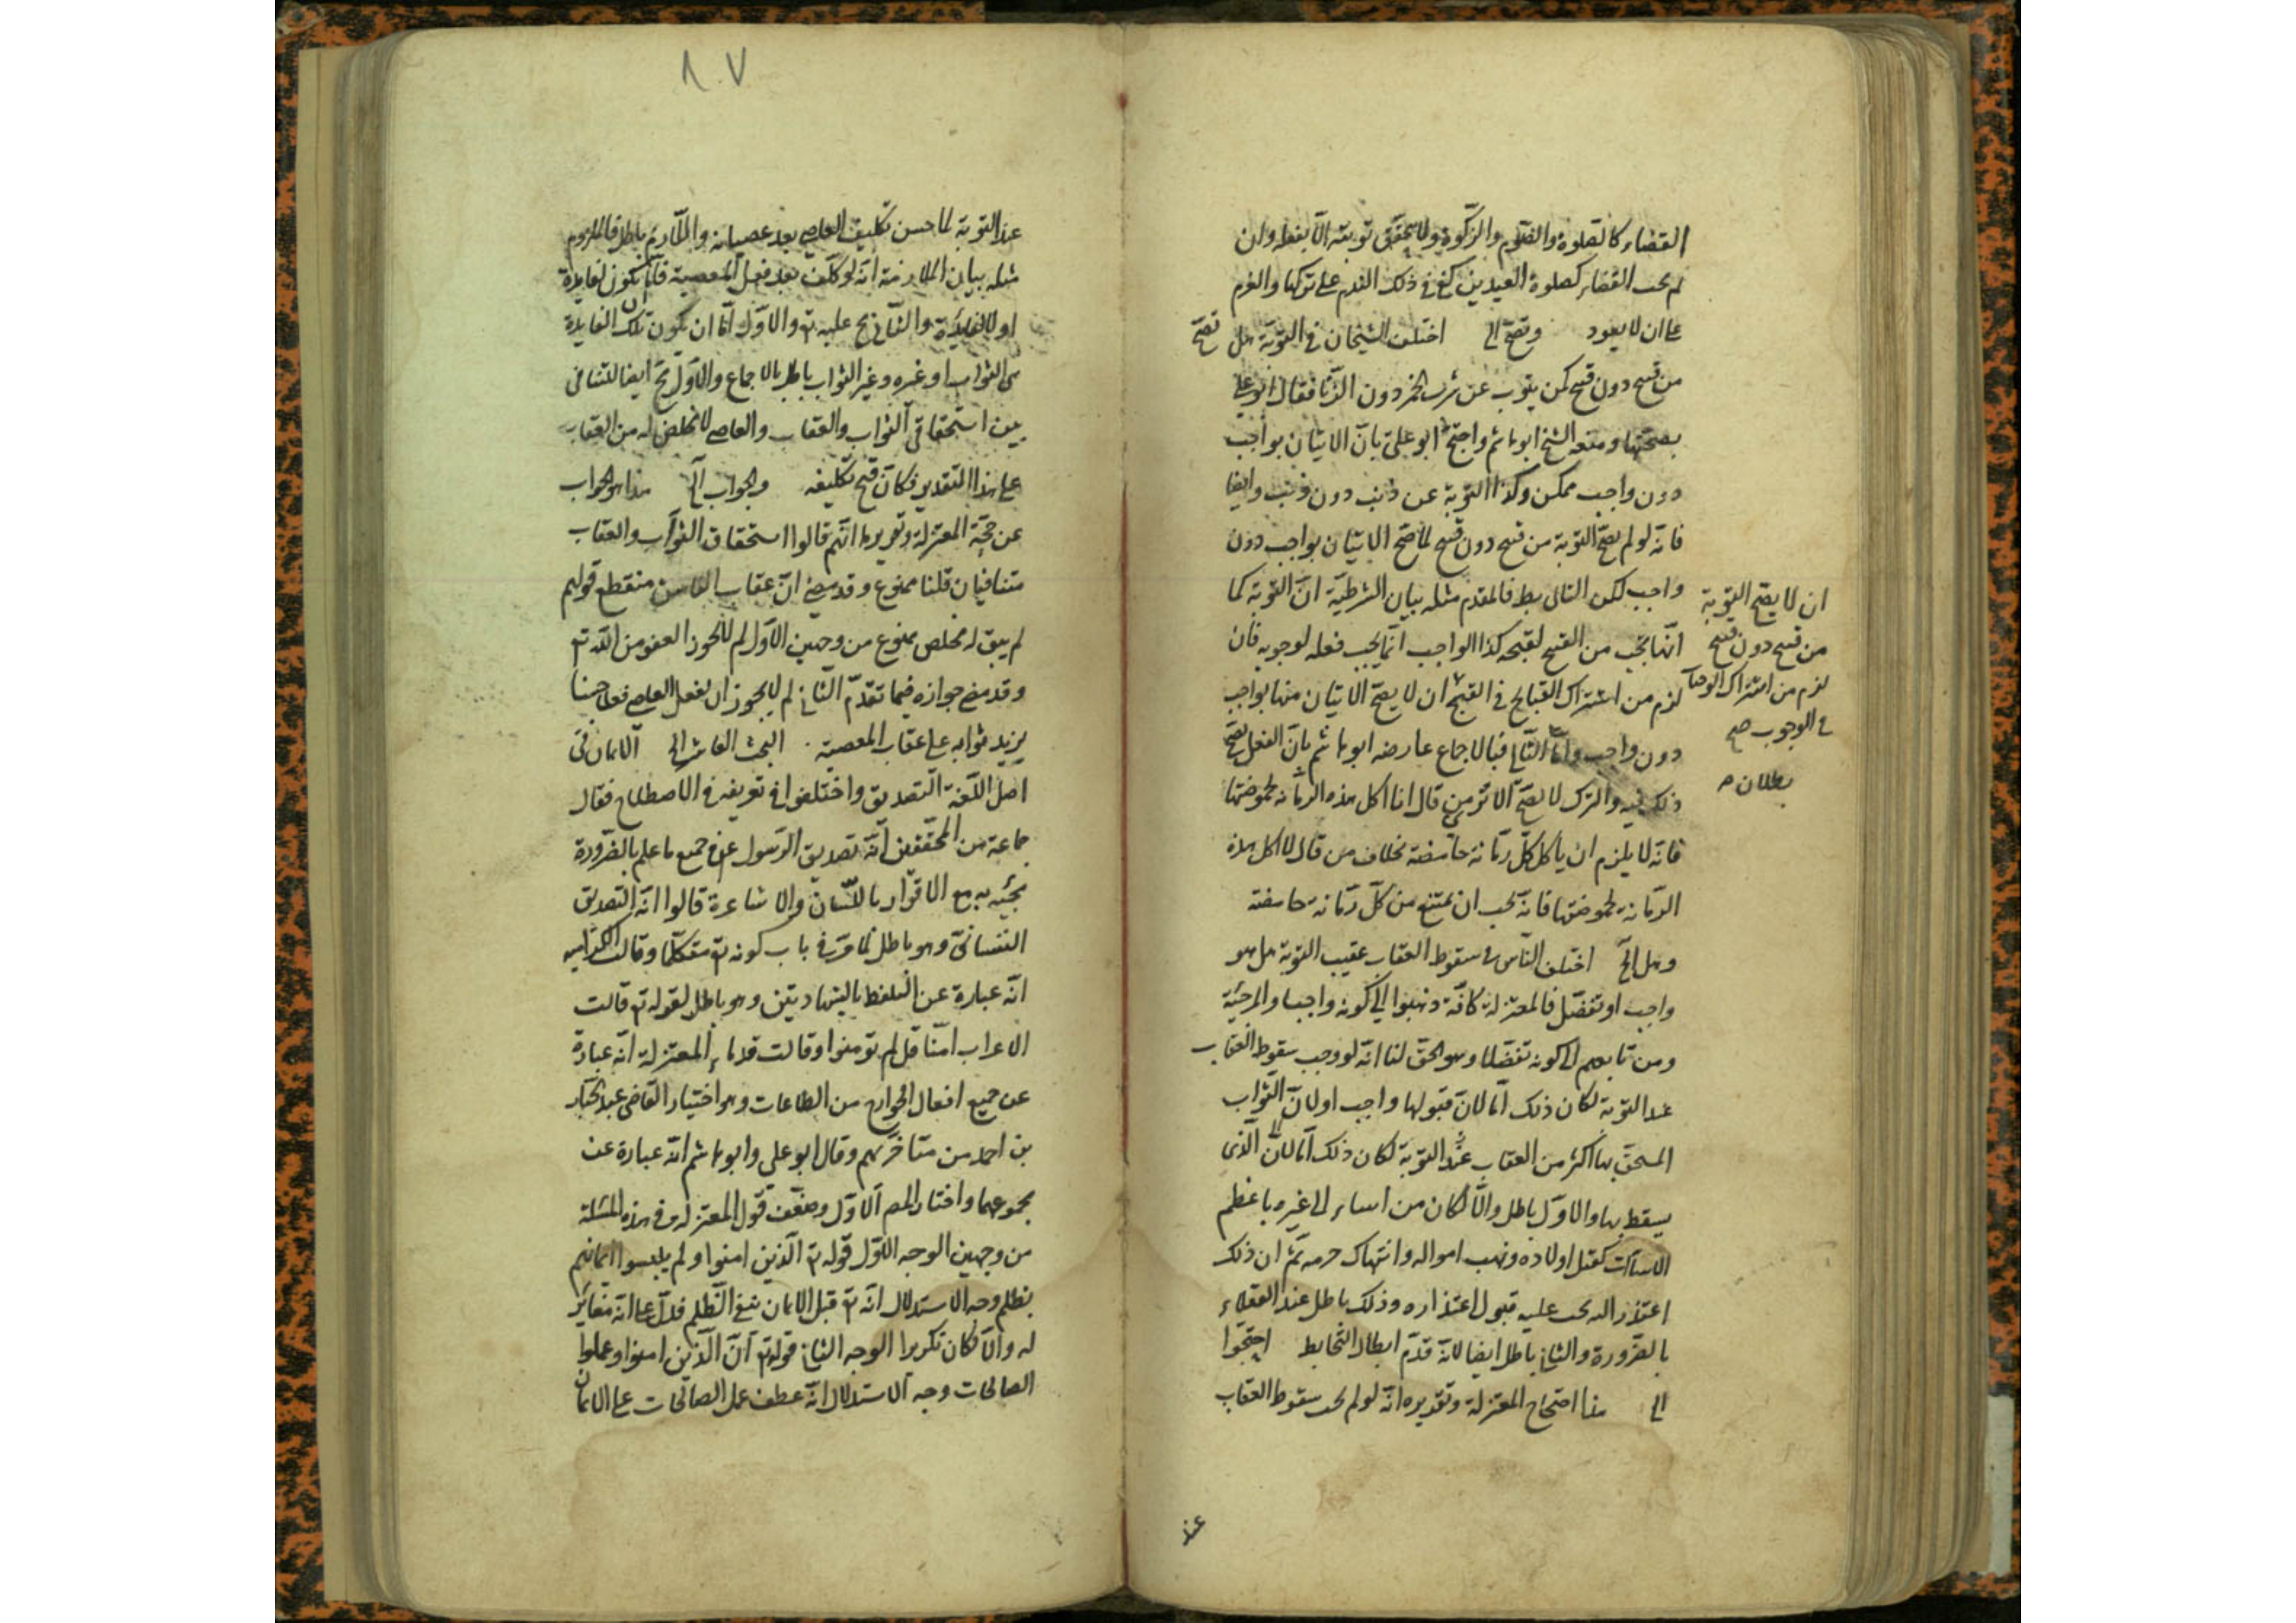 القضاء كالصلوة والصوم والزكوة ولا يتحقق توبته الا بفعله وان
لم يجب القضاء كصلوة العيدين كفى في ذلك الندم على تركها والعزم
على ان لا يعود وتصح الى اختلف الشيخان في التوبة هل تصح
من قبيح دون قبيح كمن يتوب عن شرب الخمر دون الزنا فقال ابو على
بصحتها ومنعه الشيخ ابو هاشم واحتج ابو على بان الاتيان بواجب
دون واجب ممكن وكذا التوبة عن ذنب دون ذنب وايضا
فانه لو لم يصح التوبة من قبيح دون قبيح لما صح الاتيان بواجب دون
واجب لكن التالى بط فالمقدم مثله بيان الشرطية ان التوبة كما
انها يجب من القبيح لقبحه كذا الواجب انما يجب فعله لوجوبه فان
لزم من اشتراك القبايح في القبح ان لا يصح الاتيان منها بواجب
دون واجب واما الثانى فبالاجماع عارضه ابو هاشم بان الفعل يصح
ذلك فيه والترك لا يصح الا ترى من قال انا اكل هذه الرمانة لحموضتها
فانه لا يلزم ان ياكل كل رمانة حامضة بخلاف من قال لا اكل هذه
الرمانة لحموضتها فانه يجب ان يمتنع من كل رمانة حامضة
وهل الخ اختلف الناس في سقوط العقاب عقيب التوبة هل هو
واجب او تفضل فالمعتزلة كافة ذهبوا الى كونه واجبا والمرجئة
ومن تابعهم الى كونه تفضلا وهو الحق لنا انه لو وجب سقوط العقاب
عند التوبة لكان ذلك اما لان قبولها واجب او لان الثواب
المستحق بها اكثر من العقاب عند التوبة لكان ذلك اما لان الذى
يسقط بها والاول باطل والا لكان من اساء الى غيره باعظم
الاساءات كقتل اولاده ونهب امواله وانتهاك حرمه ثم ان ذلك
اعتذر اليه يجب عليه قبول اعتذاره وذلك باطل عند العقلاء
بالضرورة والثانى باطل ايضا لانه قدم ابطال التحابط احتجوا
الى هذا احتجاج المعتزلة وتقديره انه لو لم يجب سقوط العقاب
عند
ان لا يصح التوبة
من قبيح دون قبيح
لزم من اشتراك الواجبات
في الوجوب صح
بطلان م
٨٠٧
عند التوبة لما حسن تكليف العاصى بعد عصيانه واللازم باطل فالملزوم
مثله بيان الملازمة انه لو كلف بعد فعل المعصية فاما ان يكون لفايدة
او لا لفايدة والثانى يح عليه تع والاول اما ان يكون تلك الفايدة
هى الثواب او غيره وغير الثواب باطل بالاجماع والاول يح ايضا للتنافى
بين استحقاقى الثواب والعقاب والعاصى لا مخلص له من العقاب
على هذا التقدير فكان قبح تكليفه والجواب الخ هذا هو الجواب
عن حجة المعتزلة وتقريرها انهم قالوا استحقاق الثواب والعقاب
متنافيان قلنا ممنوع وقد مضى ان عقاب الفاسق منقطع قولهم
لم يبق له مخلص ممنوع من وجهين الاول لم لا يجوز العفو من الله تع
وقد مضى جوازه فيما تقدم الثانى لم لا يجوز ان يفعل العاصى فعلا حسنا
يزيد ثوابه على عقاب المعصية البحث العاشر الى الايمان في
اصل اللغة التصديق واختلفوا في تعريفه في الاصطلاح فقال
جماعة من المحققين انه تصديق الرسول ع في جميع ما علم بالضرورة
مجيئه به مع الاقرار باللسان والاشاعرة قالوا انه التصديق
النفسانى وهو باطل لما مر في باب كونه تع متكلما وقالت الكرامية
انه عبارة عن التلفظ بالشهادتين وهو باطل لقوله تع قالت
الاعراب امنا قل لم تومنوا وقالت قدماء المعتزلة انه عبارة
عن جميع افعال الجوارح من الطاعات وهو اختيار القاضى عبد الجبار
بن احمد من متاخريهم وقال ابو على وابو هاشم انه عبارة عن
مجموعهما واختار المص الاول وضعف قول المعتزلة في هذه المسئلة
من وجهين الوجه الاول قوله تع الذين امنوا ولم يلبسوا ايمانهم
بظلم وجه الاستدلال انه تع قيد الايمان بنفى الظلم فدل على انه مغاير
له والا لكان تكريرا الوجه الثانى قوله تع ان الذين امنوا وعملوا
الصالحات وجه الاستدلال انه عطف عمل الصالحات على الايمان